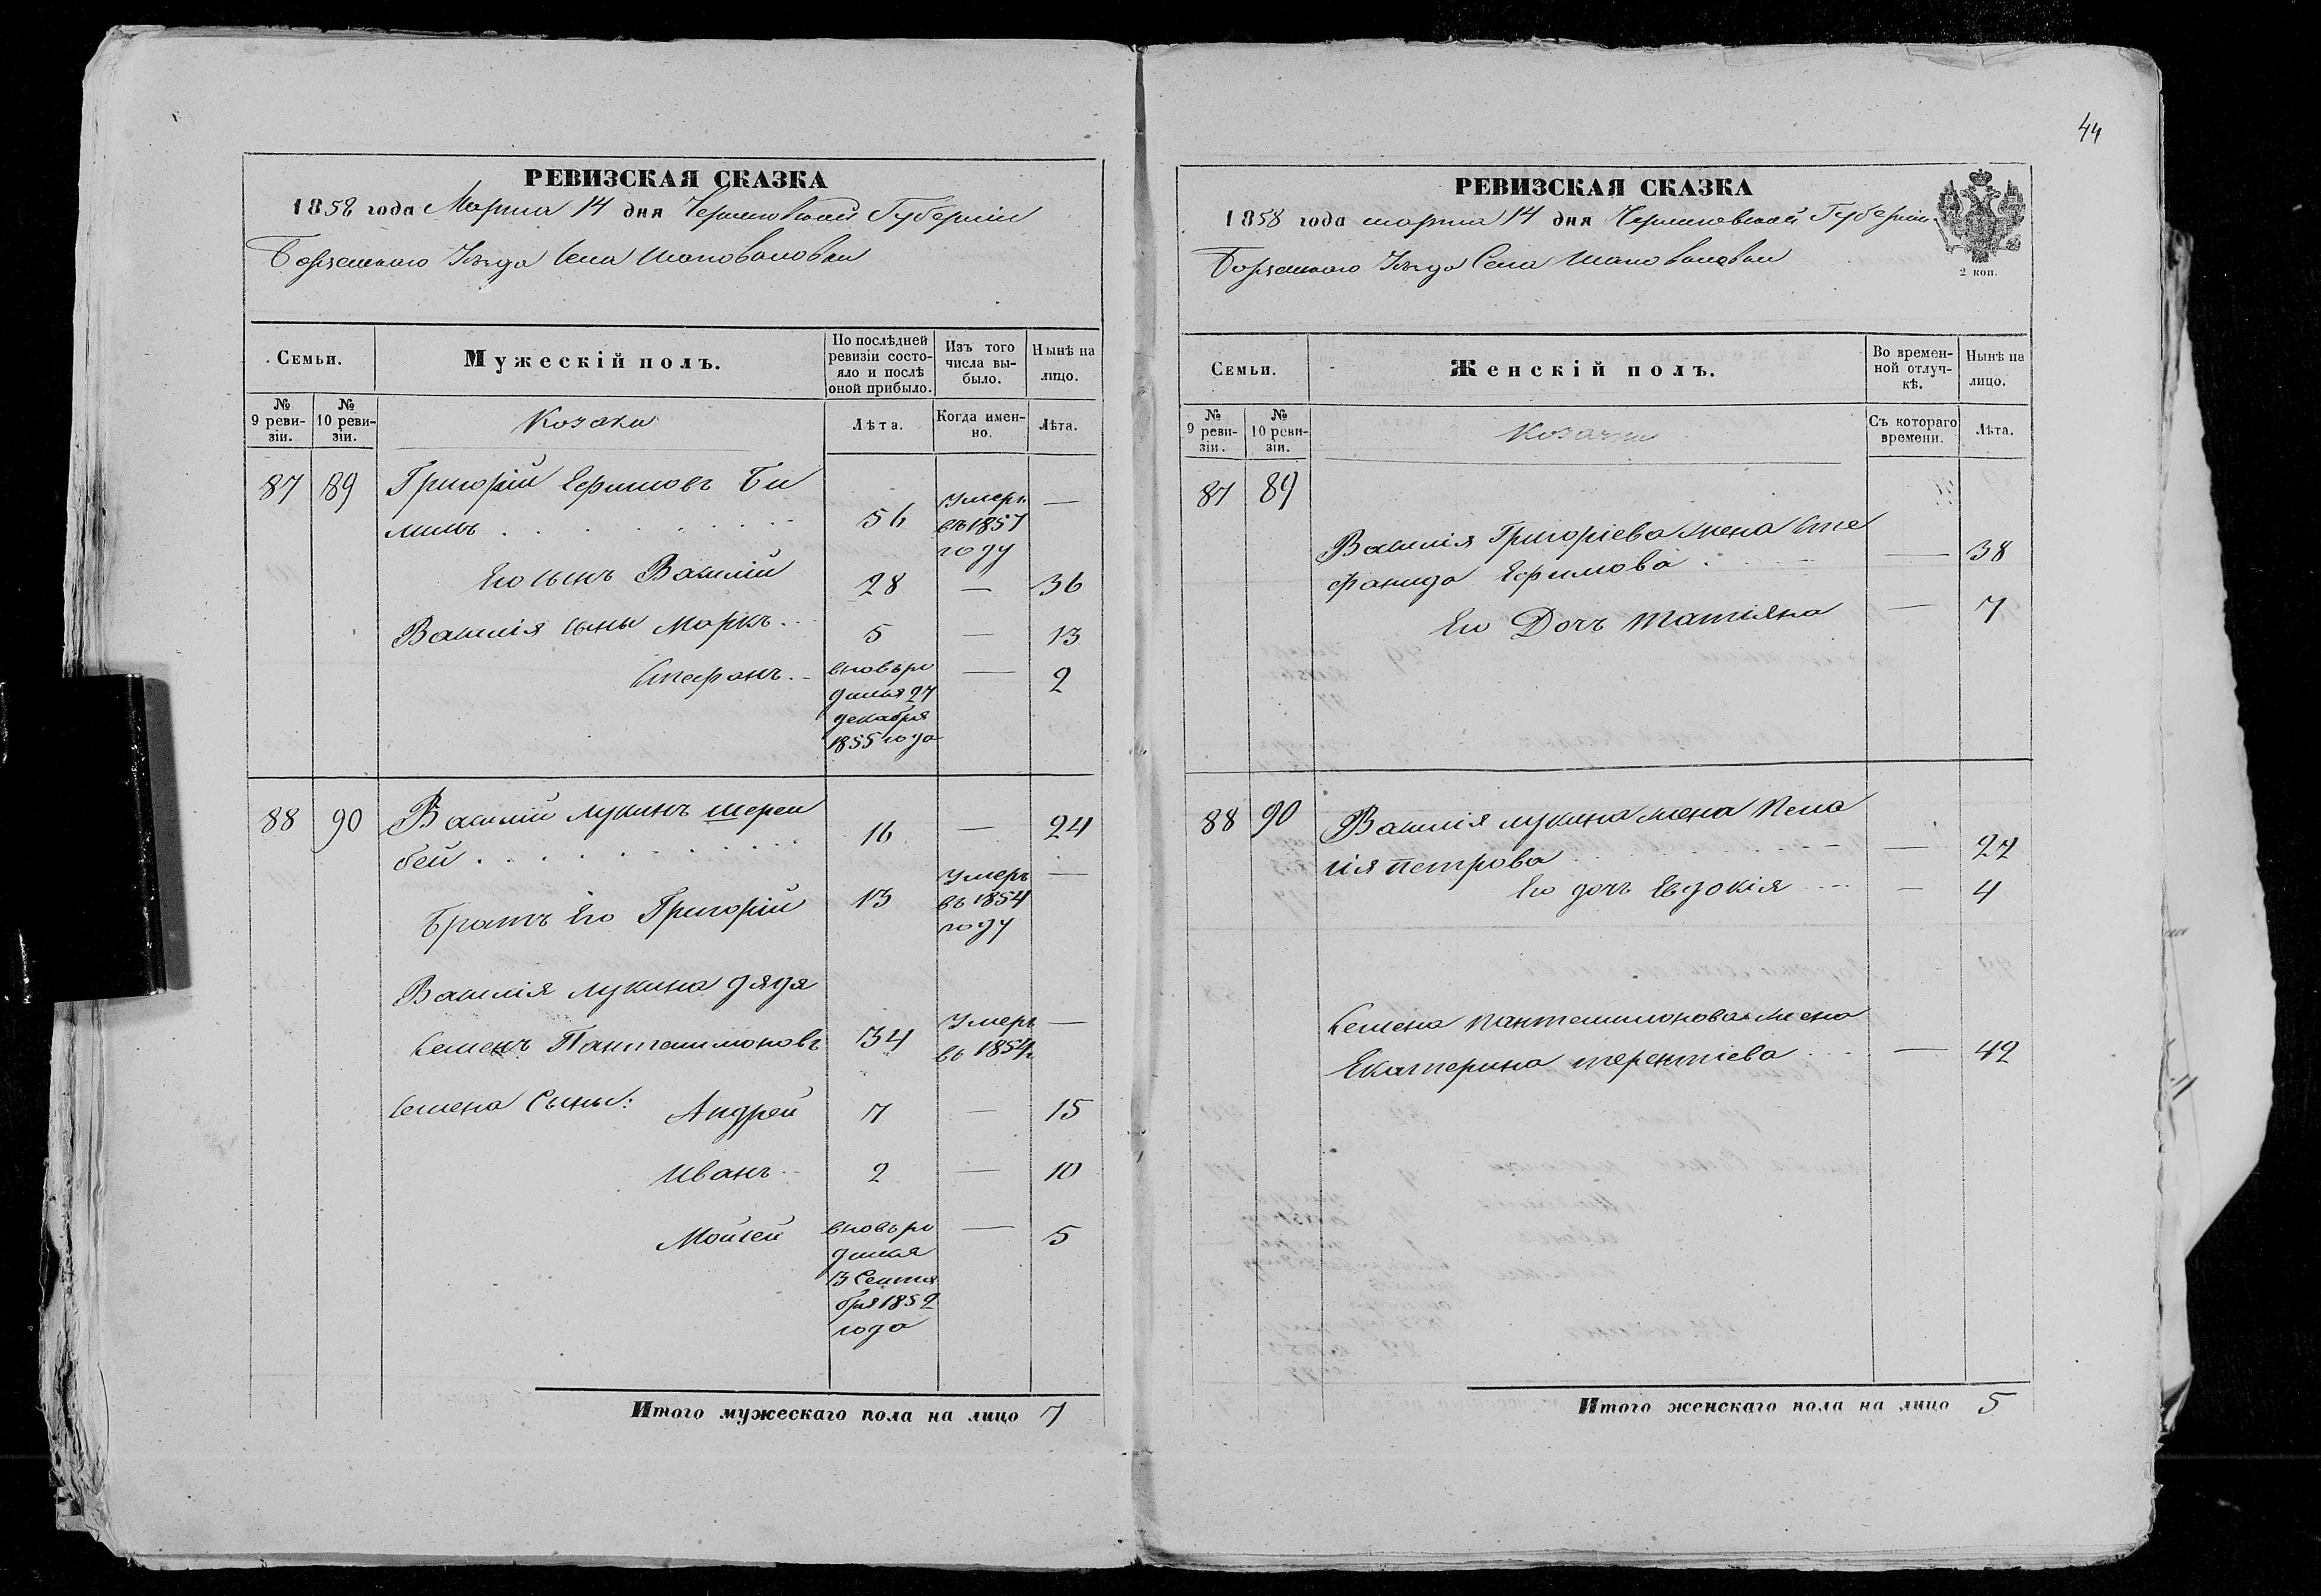 44
РЕВИЗСКАЯ СКАЗКА
1858 года Марта 14 дня Черниговской Губерніи
Борзенскаго Уезда Села Шаповаловки
Семьи.
Мужескій полъ.
По послѣдней ревизіи состо-
яло и послѣ
оной прибыло.
Изъ того
числа вы-
было.
Нынѣ на
лицо.
№
9 реви-
зіи.
№
10 реви-
зіи.
Козаки
Лѣта.
Когда имен-
но.
Лѣта.
87 89 Григорій Ефимовъ Би
мимъ 56 умеръ въ 1857 году —
Его сынъ Василій 28 — 36
Василія сыны Маркъ 5 — 13
Стефанъ вновь ро — 2
дился 27
декабря
1855 года
88 90 Василій Лукинъ Шереи
бей 16 — 24
Братъ Его Григорій 13 умеръ въ 1854 году —
Василія Лукина дядя
Семенъ Пантелимоновъ 34 умеръ въ 1854 г —
Семена Сыны: Андрей 7 — 15
Иванъ 2 — 10
Мойсей вновь ро — 5
дился
13 Сентя
бря 1852
года
Итого мужескаго пола на лицо 7
РЕВИЗСКАЯ СКАЗКА
1858 года марта 14 дня Черниговской Губерніи
Борзенскаго Уезда Села Шаповаловки
2 коп.
Семьи.
Женскій полъ.
Во времен-
ной отлуч-
кѣ.
Нынѣ на
лицо.
№
9 реви-
зіи.
№
10 реви-
зіи.
Козачки
Съ котораго
времени.
Лѣта.
87 89
Василія Григоріева жена Сте
фанида Ефимова — 38
Его Дочъ Татіяна — 7
88 90 Василія Лукина жена Пела
гія Петрова — 27
Его дочъ Евдокія — 4
Семена Пантелимонова жена
Екатерина терентіева — 42
Итого женскаго пола на лицо 5